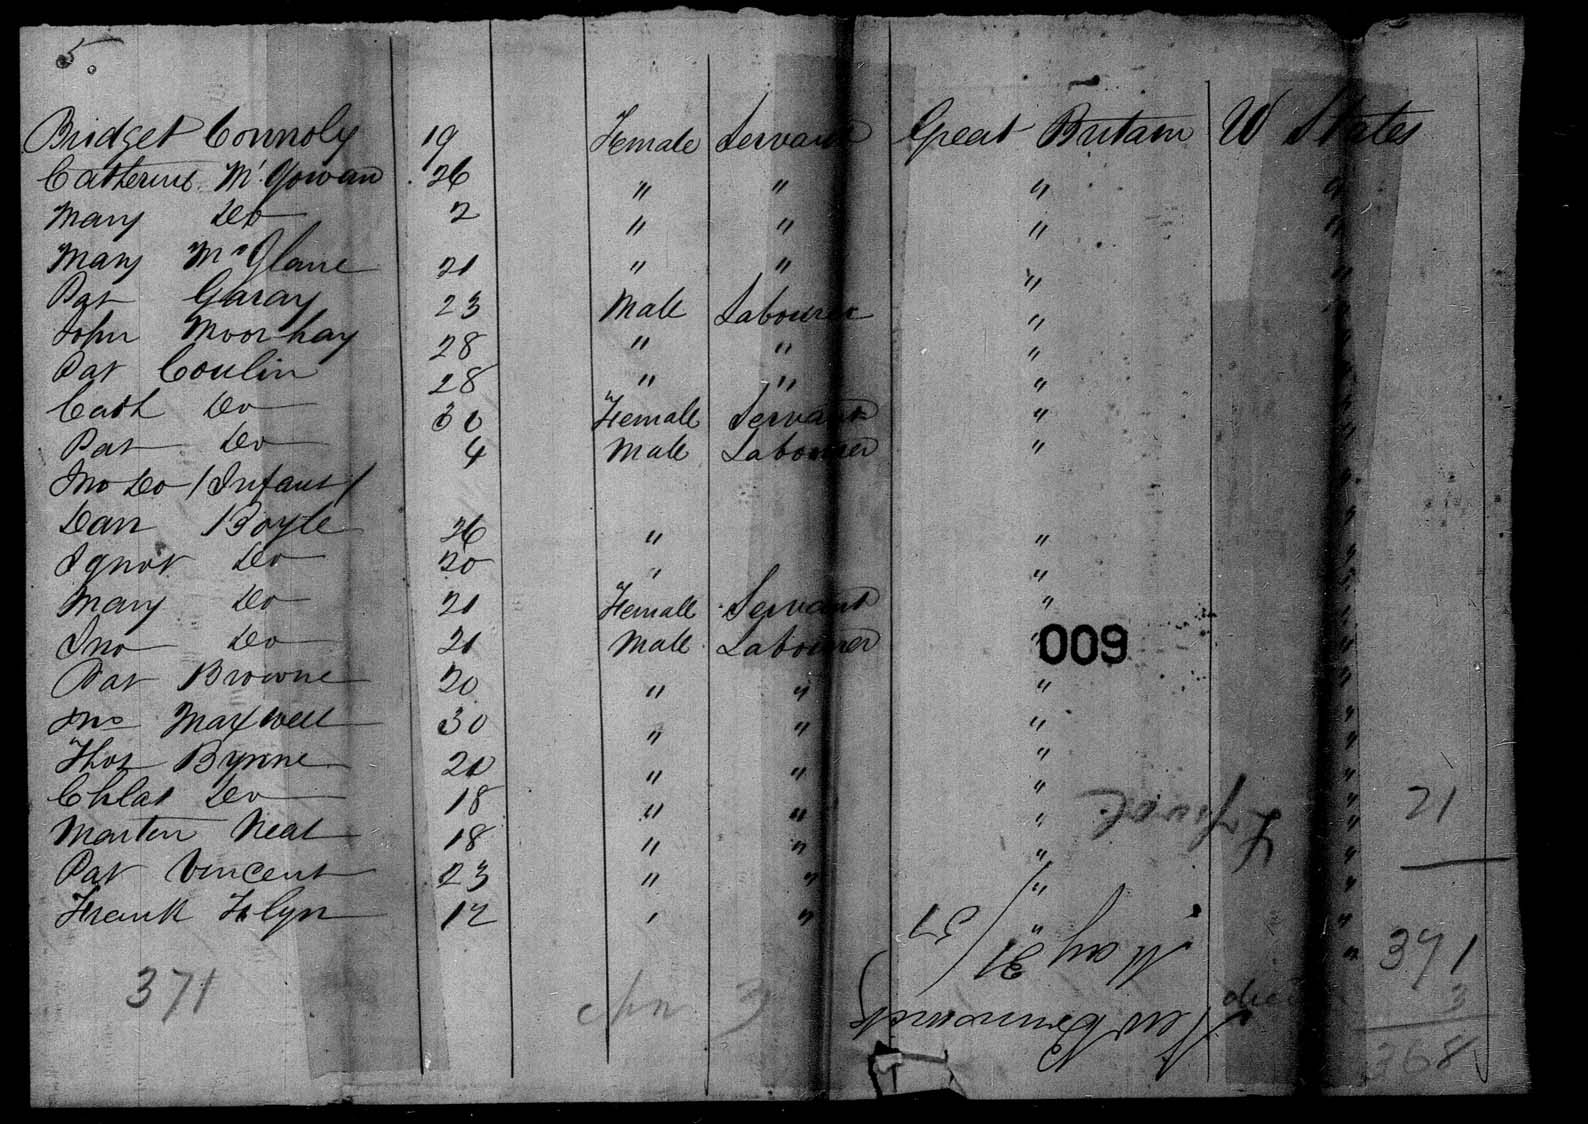 5.
Bridget Connoly 19 Female Servant Great Britain U States
Catherine McGowan 26 " " " "
Mary Do 2 " " " "
Mary McGlane 21 " " " "
Pat Garay 23 Male Labourer " "
John Moorhay 28 " " " "
Pat Coulin 28 " " " "
Cath Do 30 Female Servant " "
Pat Do 4 Male Labourer " "
Jno Do (Infant)
Dan Boyle 26 " " "
Do 20 " " "
Mary Do 21 Female Servant " "
Jno Do 21 Male Labourer " "
009
Pat Browne 20 " " " "
Jno Maxwell 30 " " " "
Thos Byrne 20 " " " "
Do 18 " " " "
Marten Neal 18 " " " "
Pat Vincent 23 " " " "
Frank Flyn 17 " " " "
21
371
3
368
371
3
May 31/51
New Brunswick